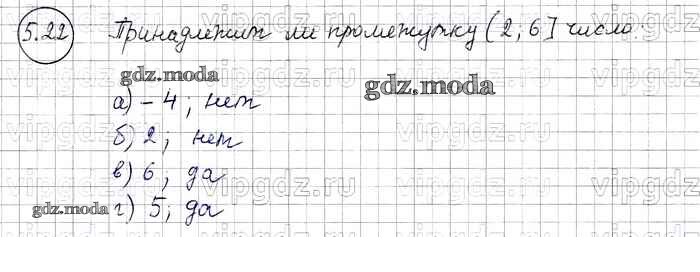 5.22 Принадлежит ли промежутку (2; 6] число:
gdz.moda
gdz.moda
а) -4; нет
vipgdz.ru vipgdz.ru
б) 2; нет
в) 6, да
vipgdz.ru vipgdz.ru
gdz.moda г) 5; да